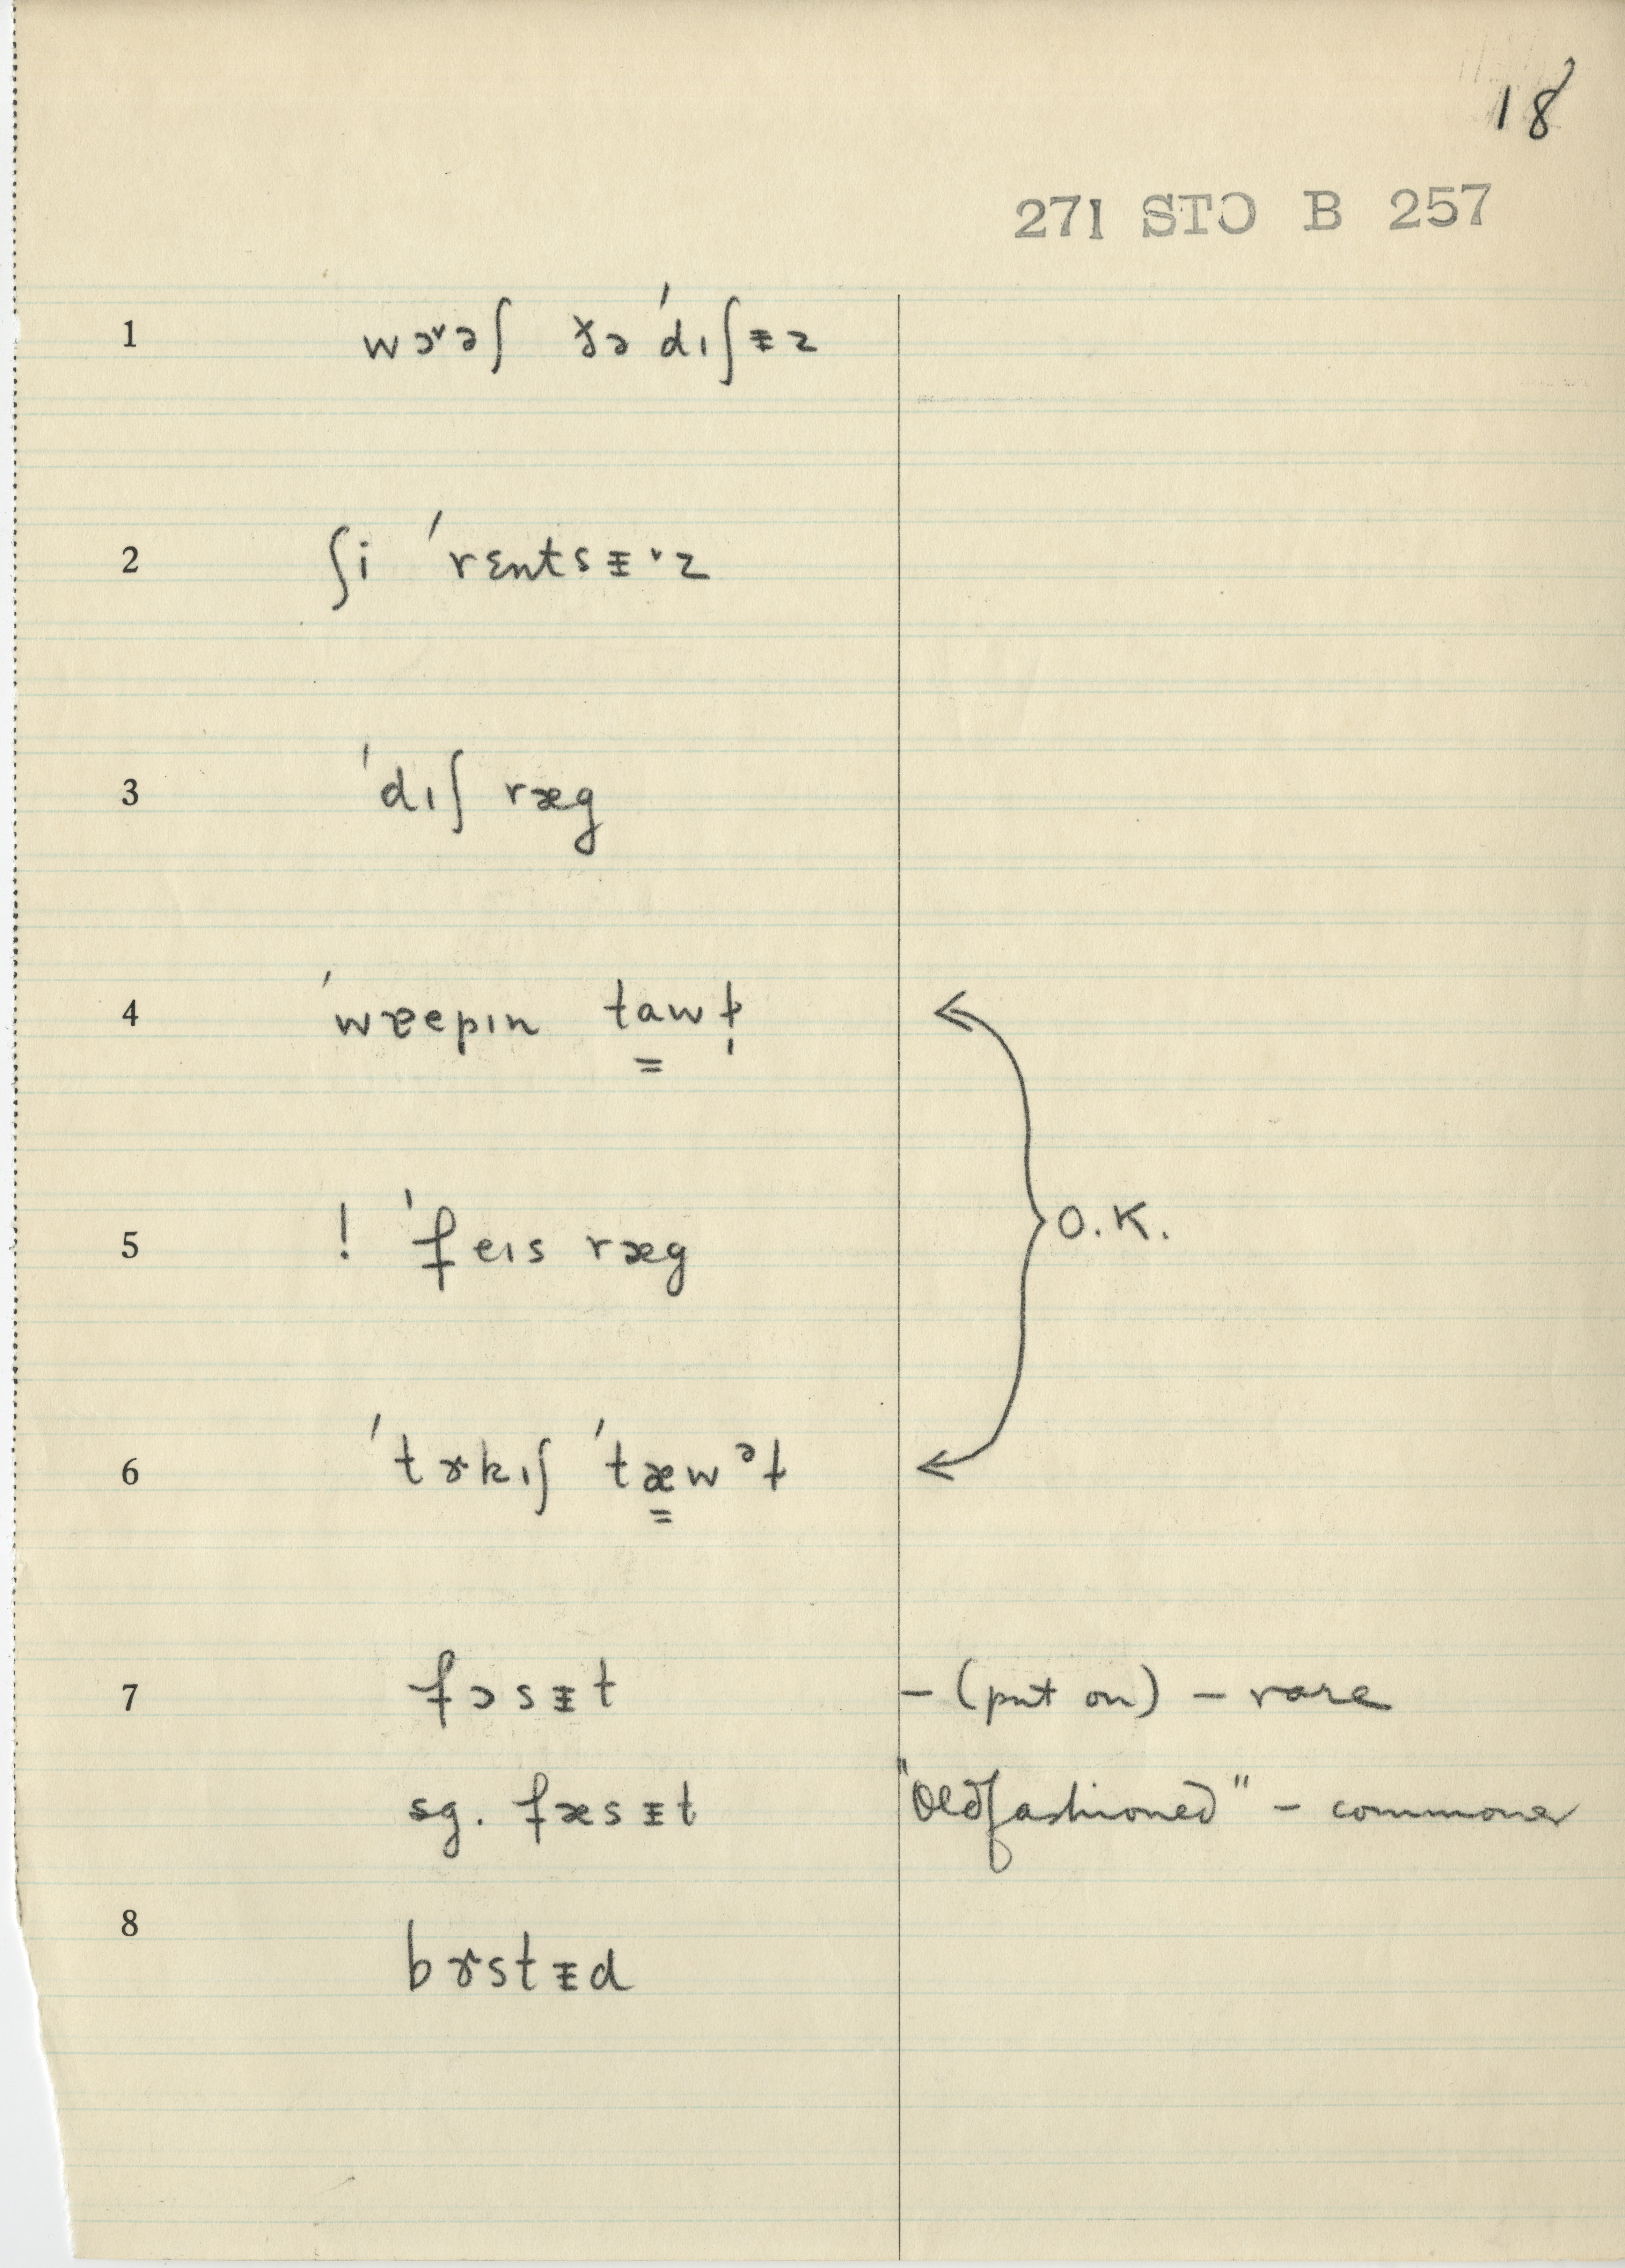 18
271 STO B 257
1 wɔ˞əʃ ðə ˈdɪʃɪ̵z
2 ʃi ˈrɛntsɪ̵˞z
3 ˈdɪʃ ræg
4 ˈwɐepɪn tawɫ̩
5 ! ˈfeɪs ræg O.K.
6 ˈtɝkɪʃ ˈtæwᵊɫ
7 fɔsɪ̵t – (put on) – rare
sg. fæsɪ̵t "Oldfashioned" – commoner
8 bɝstɪ̵d